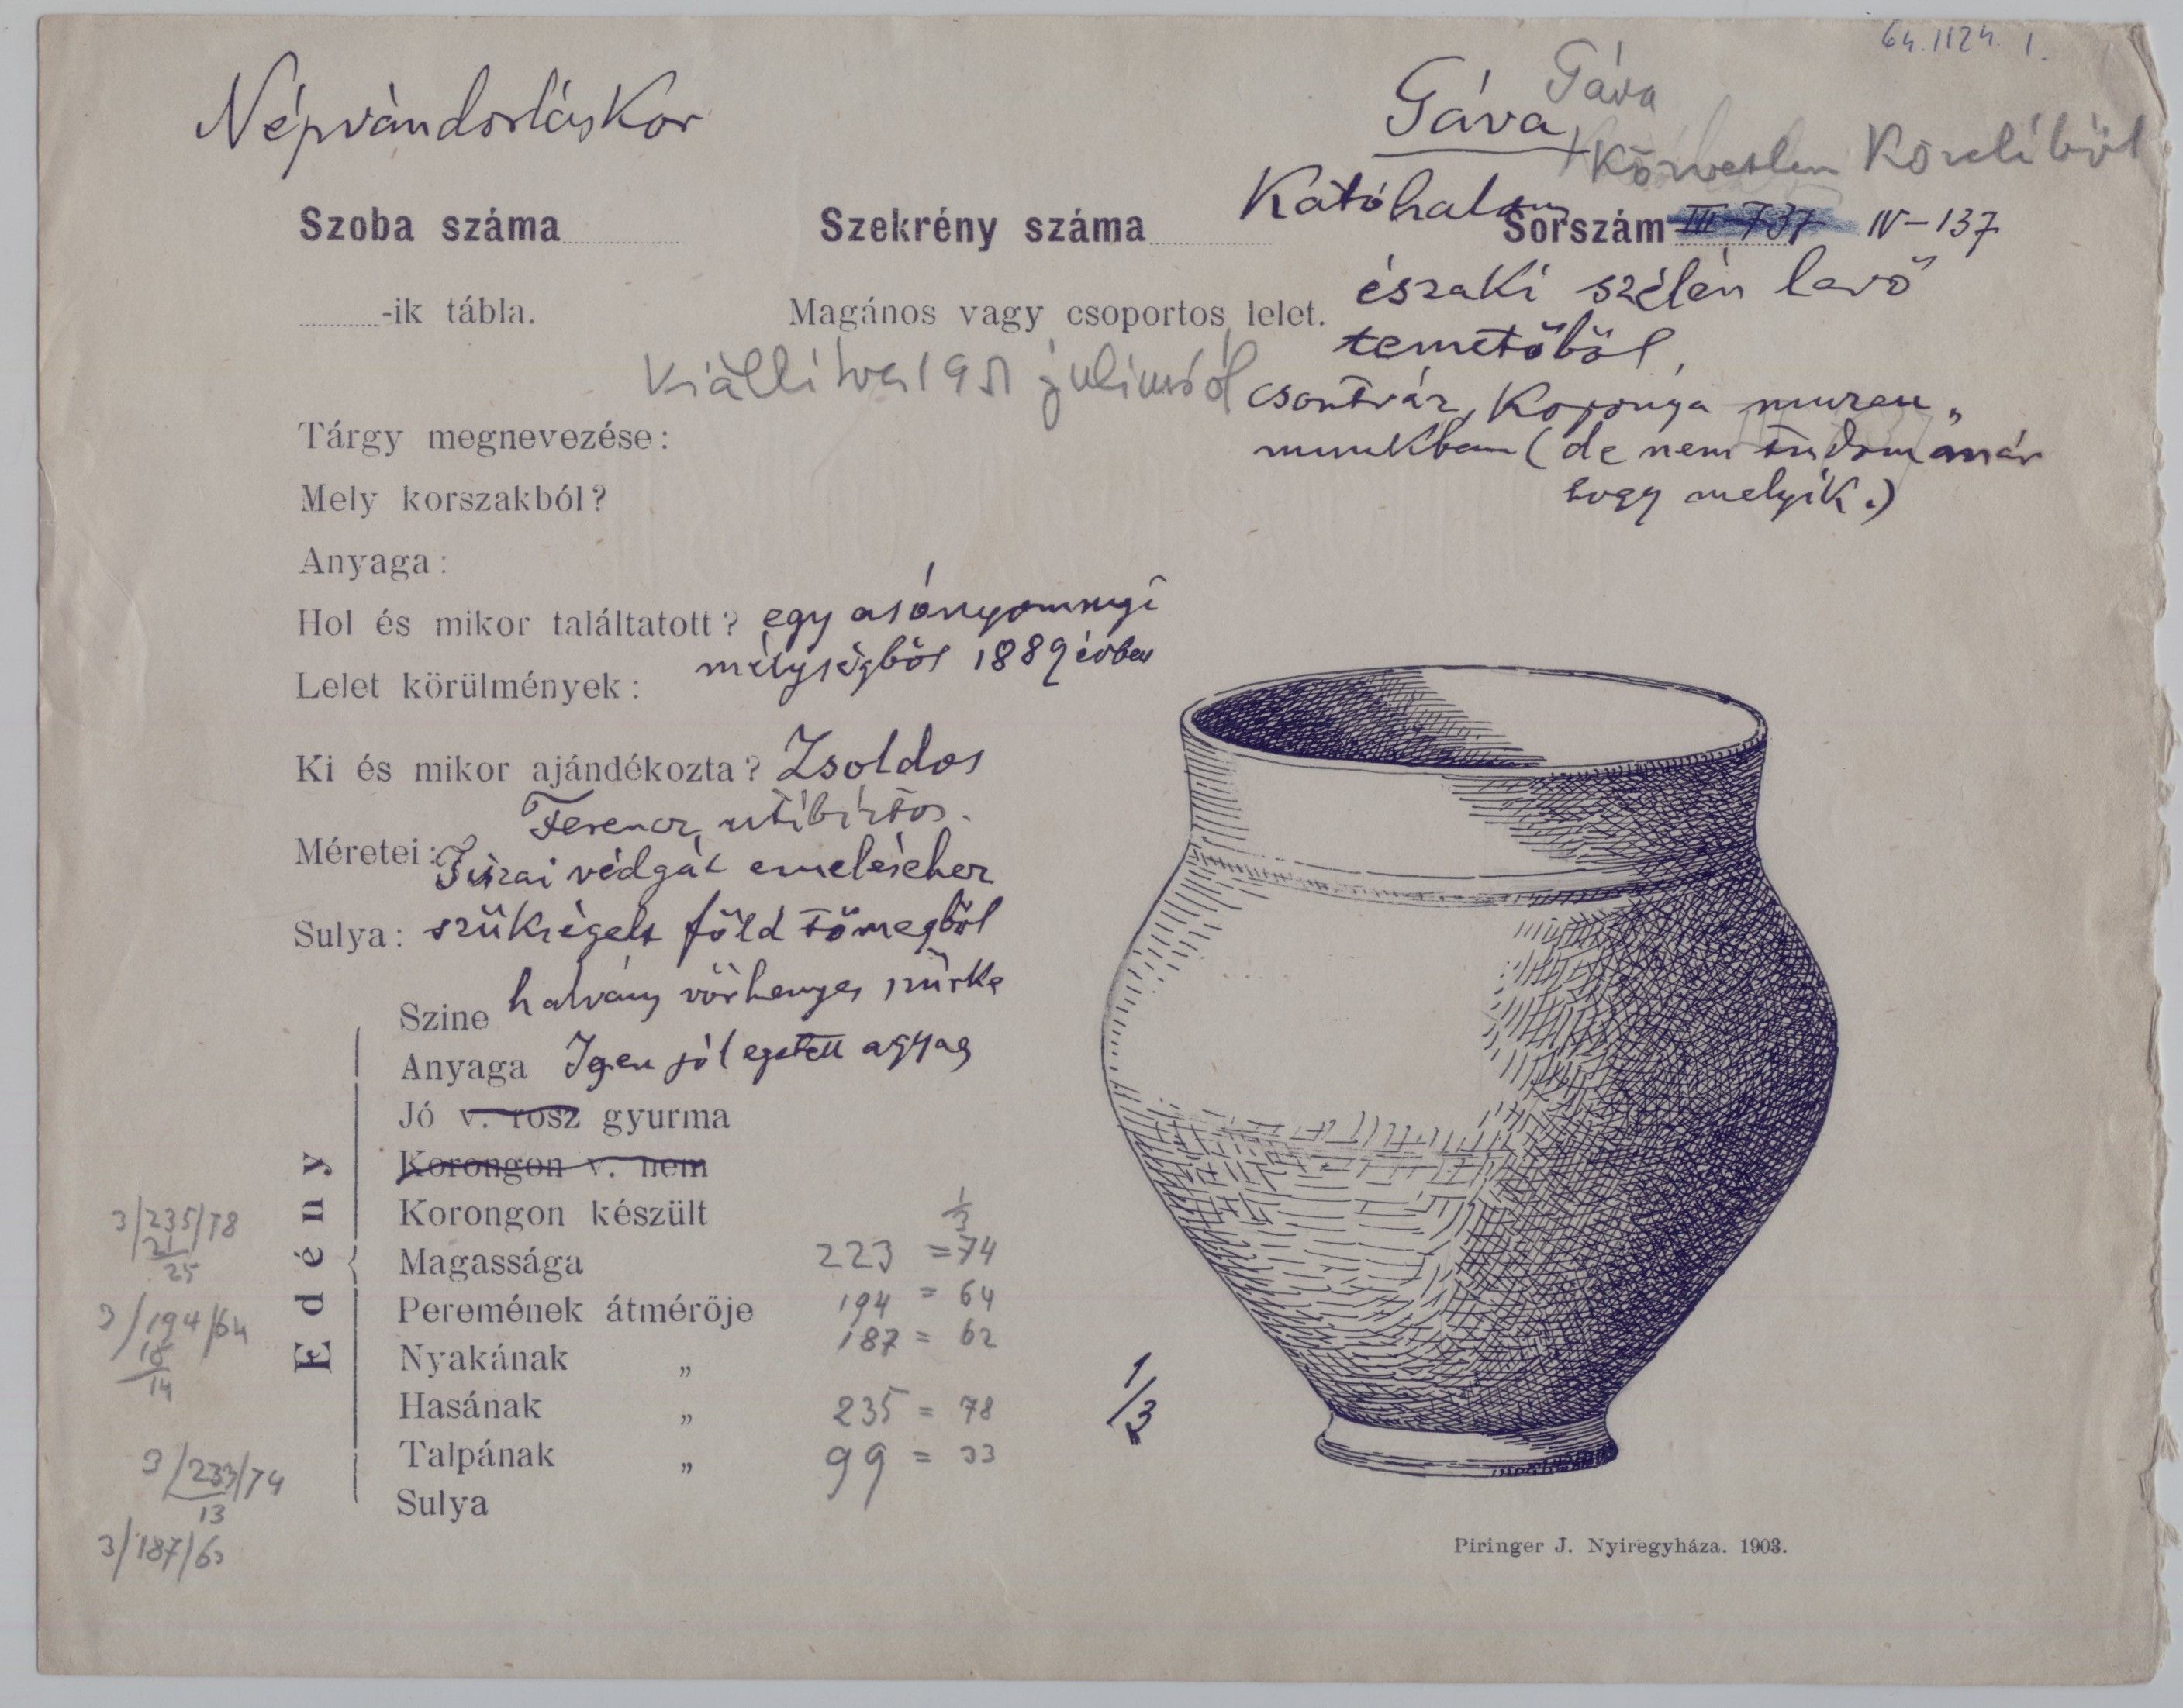 64.1124. 1.
Népvándorláskor
Gáva Gáva
közvetlen közeléből
Katóhalom
Szoba száma Szekrény száma Sorszám III-737 IV-137
északi szélén levő
-ik tábla. Magános vagy csoportos lelet.
temetőből,
Kiállítva 1951 júliustól
csontváz, koponya muzeu„
Tárgy megnevezése:
munkban (de nem tudom már
hogy melyik.)
Mely korszakból?
Anyaga:
Hol és mikor találtatott? egy ásónyomnyi
mélységből 1889 évben
Lelet körülmények:
Ki és mikor ajándékozta? Zsoldos
Ferencz utibiztos.
Méretei: Tiszai védgát emeléséhez
Sulya: szükségelt föld tömegből
Szine halvány vörhenyes szürke
Anyaga Igen jól egetett agyag
Jó v. rosz gyurma
Korongon v. nem
Korongon készült
1/3
Magassága 223 = 74
Peremének átmérője 194 = 64
Nyakának „ 187 = 62
Hasának „ 235 = 78
Talpának „ 99 = 33
Sulya
Edény
3/235/78
21
25
3/194/64
18
14
3/233/74
13
3/187/6
1/3
Piringer J. Nyiregyháza. 1903.